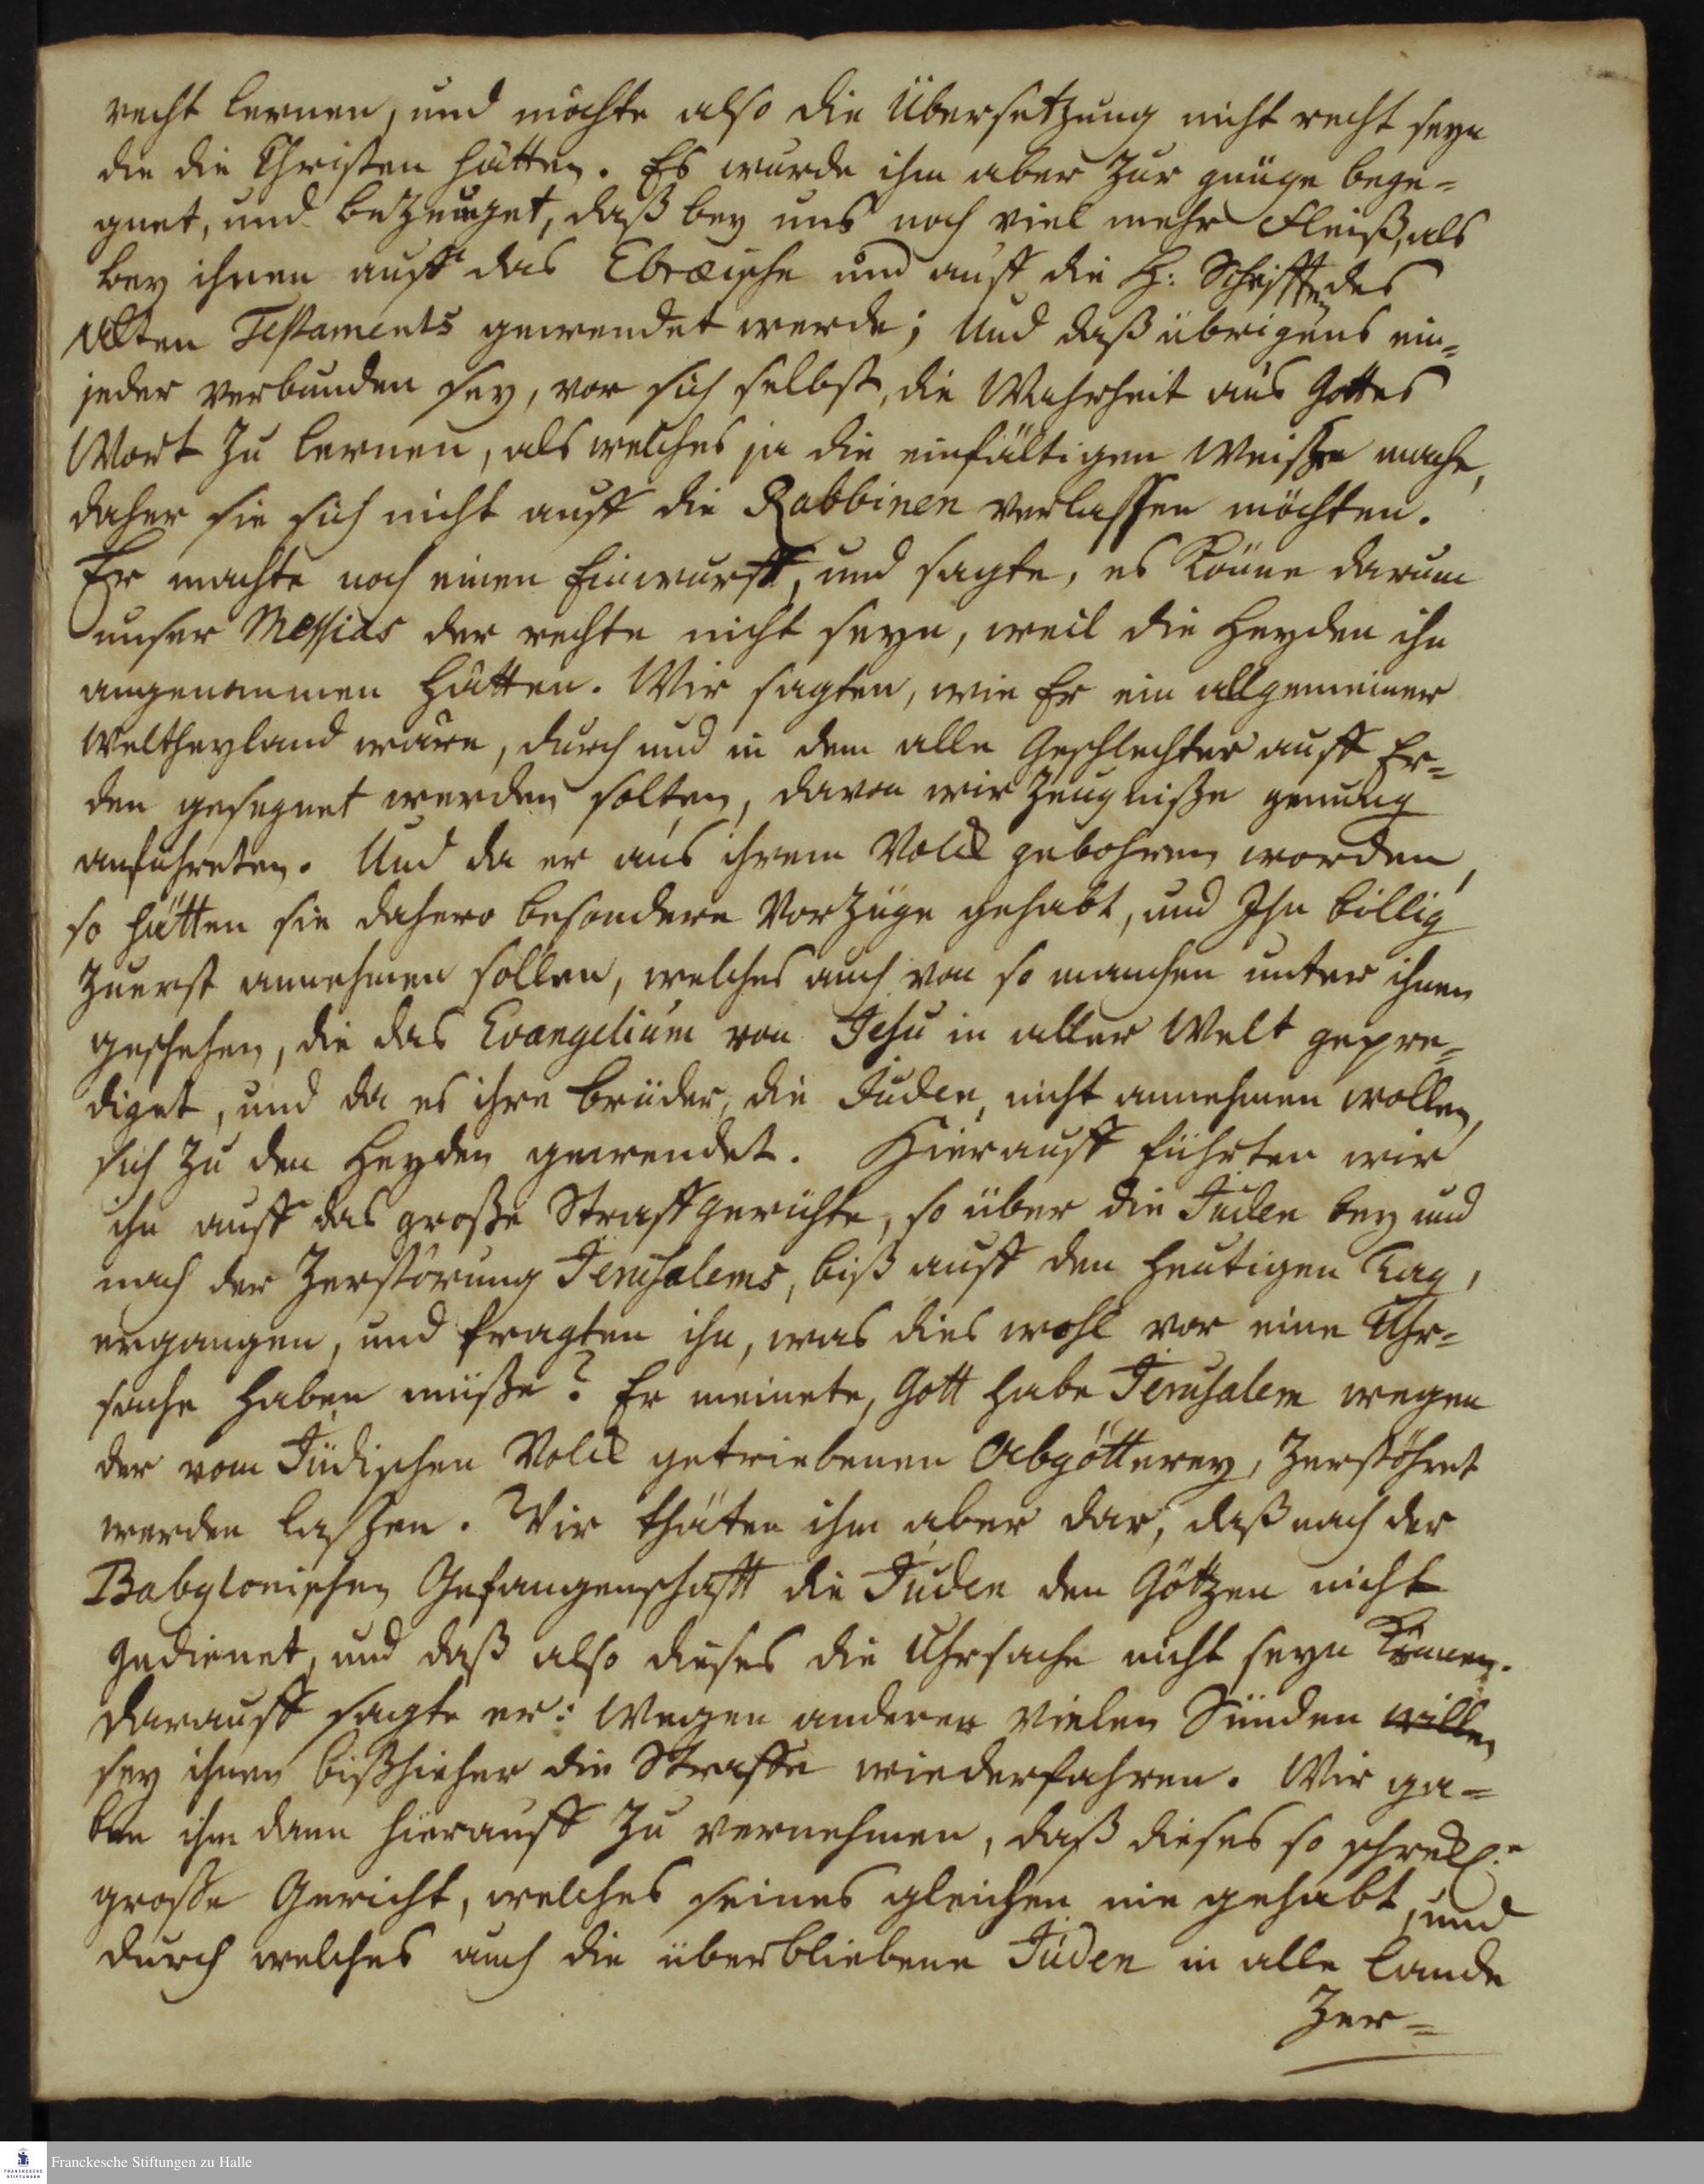 recht lernen, und möchte also die Übersetzung nicht recht seyn
die die Christen hätten. Es wurde ihm aber zur gnüge bege=
gnet, und bezeuget, daß bey uns noch viel mehr Fleiß, als
bey ihnen auff das Ebræische und auff die H: Schrifften des
Alten Testaments gewendet werde; Und daß übrigens ein=
jeder verbunden sey, vor sich selbst, die Wahrheit aus Gottes
Wort zu lernen, als welches ja die einfältigen Weisze mache,
daher sie sich nicht auff die Rabbinen verlassen möchten.
Er machte noch einen Einwurff, und sagte, es könne darum
unser Messias der rechte nicht seyn, weil die Heyden ihn
angenommen hätten. Wir sagten, wie Er ein allgemeiner
Weltheyland wäre, durch und in dem alle Geschlechter auff Er=
den gesegnet werden solten, davon wir Zeugniße genung
anführeten. Und da er aus ihrem Volck gebohren worden,
so hätten sie dahero besondere Vorzüge gehabt, und Ihn billig
zuerst annehmen sollen, welches auch von so manchen unter ihnen
geschehen, die das Evangelium von Jesu in aller Welt gepre=
diget, und da es ihre brüder, die Juden, nicht annehmen wollen,
sich zu den Heyden gewendet. Hierauff führten wir
ihn auff das große Straffgerichte, so über die Juden bey und
nach der Zerstörung Jerusalems, biß auff den heutigen Tag,
ergangen, und fragten ihn, was dies wohl vor eine Uhr=
sache haben müße? Er meinete, Gott habe Jerusalem wegen
der vom Jüdischen Volck getriebenen Abgötterey, zerstöhret
werden laßen. Wir thäten ihm aber dar, daß nach der
Babylonischen Gefangenschafft die Juden den Götzen nicht
gedienet, und daß also dieses die Uhrsache nicht seyn können.
darauff sagte er: Wegen anderer vielen Sünden willen
sey ihnen bißhieher die Straffe wiederfahren. Wir ga=
ben ihm dann hierauff zu vernehmen, daß dieses so schreckl.e
grosse Gericht, welches seines gleichen nie gehabt, und
durch welches auch die überbliebene Juden in alle Lande
Zer=
Franckesche Stiftungen zu Halle
FRANCKESCHE
STIFTUNGEN